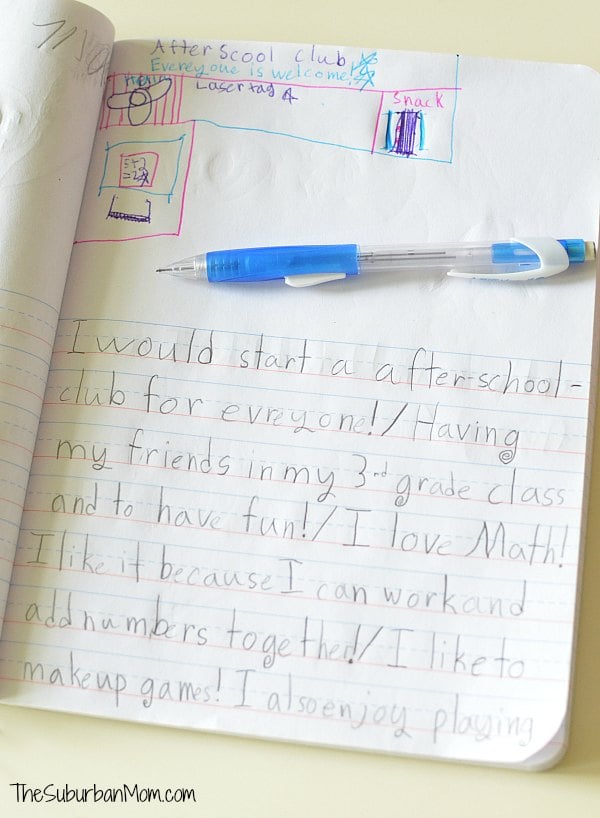 After Scool club
Evereyone is welcome!
Laser tag
Snack
I would start a after-school-
club for evreyone!/Having
my friends in my 3rd grade class
and to have fun!/I love Math!
I like it because I can work and
add numbers together!/I like to
makeup games! I also enjoy playing
TheSuburbanMom.com